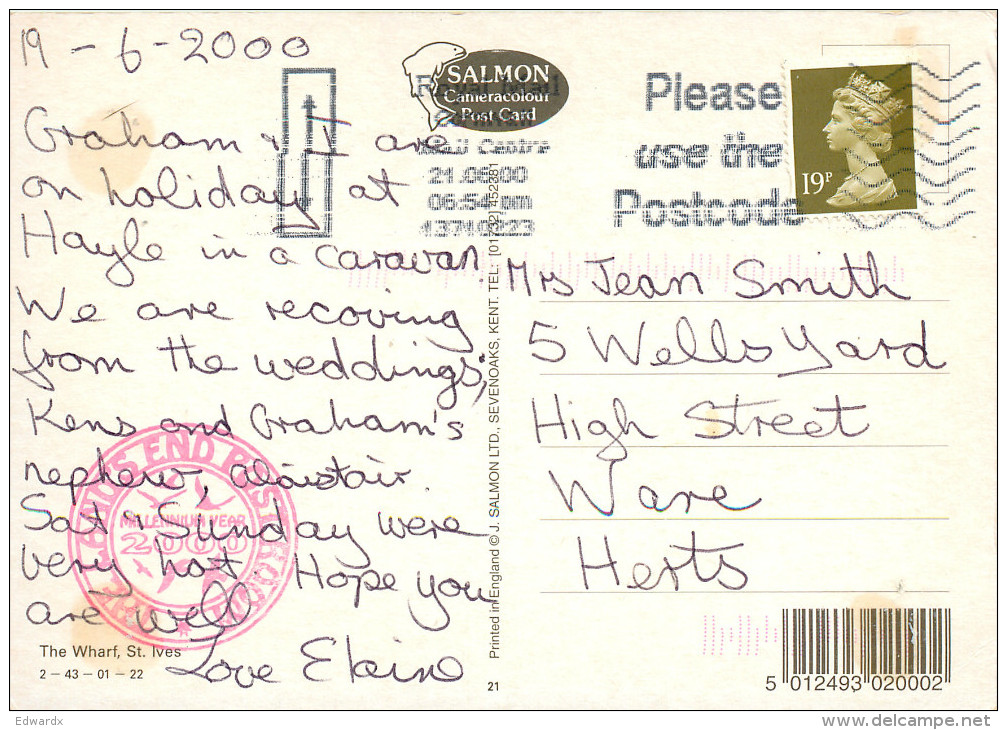 19-6-2000
Graham & I are
on holiday at
Hayle in a caravan.
We are recoving
from the weddings,
Kens and Graham's
nephew, alaistair.
Sat & Sunday were
very hot. Hope you
are well
Love Elaine
The Wharf, St. Ives
2 – 43 – 01 – 22
SALMON
Cameracolour
Post Card
Royal Mail
Cornwall
Mail Centre
21.06.00
06.54 pm
Please
use the
Postcode
19P
Printed in England © J. SALMON LTD., SEVENOAKS, KENT. TEL: [01732] 452381
Mrs Jean Smith
5 Wells Yard
High Street
Ware
Herts
LAND'S END POST
MILLENNIUM YEAR
2000
21
5 012493 020002
Edwardx
www.delcampe.net